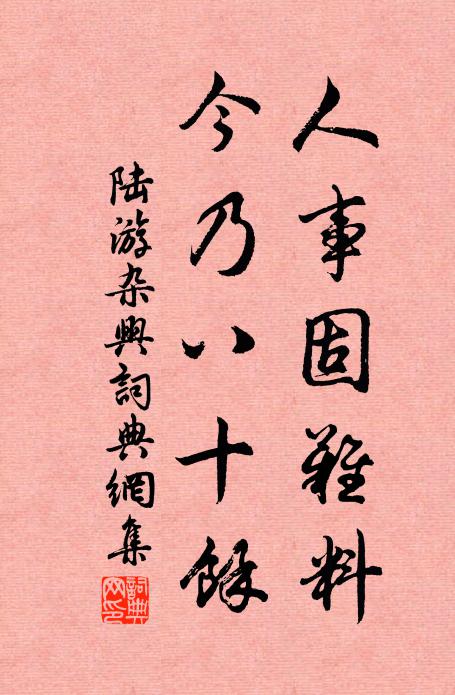 人事固難料
今乃八十餘
陆游杂興詞典網集
詞典网印